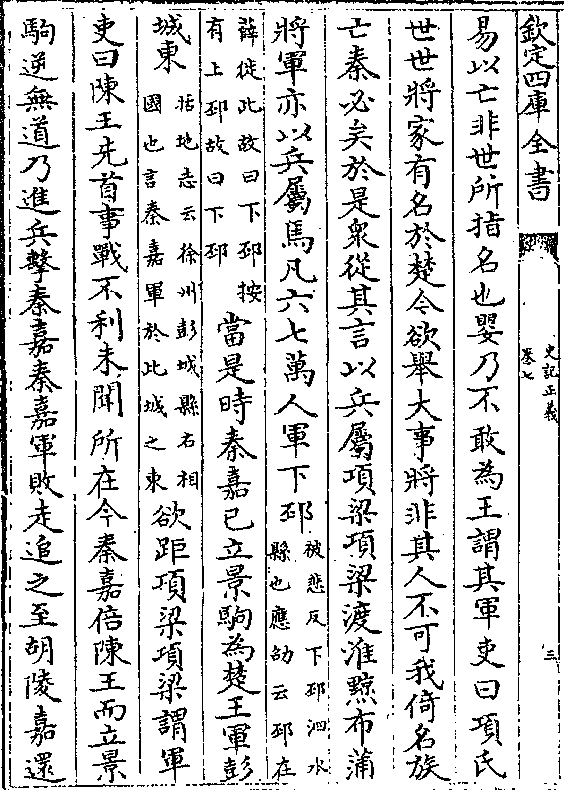 欽定四庫全書
史記正義
卷七
三
易以亡非世所指名也嬰乃不敢為王謂其軍吏曰項氏
世世將家有名於楚今欲舉大事將非其人不可我倚名族
亡秦必矣於是衆從其言以兵屬項梁項梁渡淮黥布蒲
將軍亦以兵屬焉凡六七萬人軍下邳
被悲反下邳泗水
縣也應劭云邳在
薛徙此故曰下邳按
有上邳故曰下邳
當是時秦嘉已立景駒為楚王軍彭
城東
括地志云徐州彭城縣古相
國也言秦嘉軍於此城之東
欲距項梁項梁謂軍
吏曰陳王先首事戰不利未聞所在今秦嘉倍陳王而立景
駒逆無道乃進兵擊秦嘉秦嘉軍敗走追之至胡陵嘉還